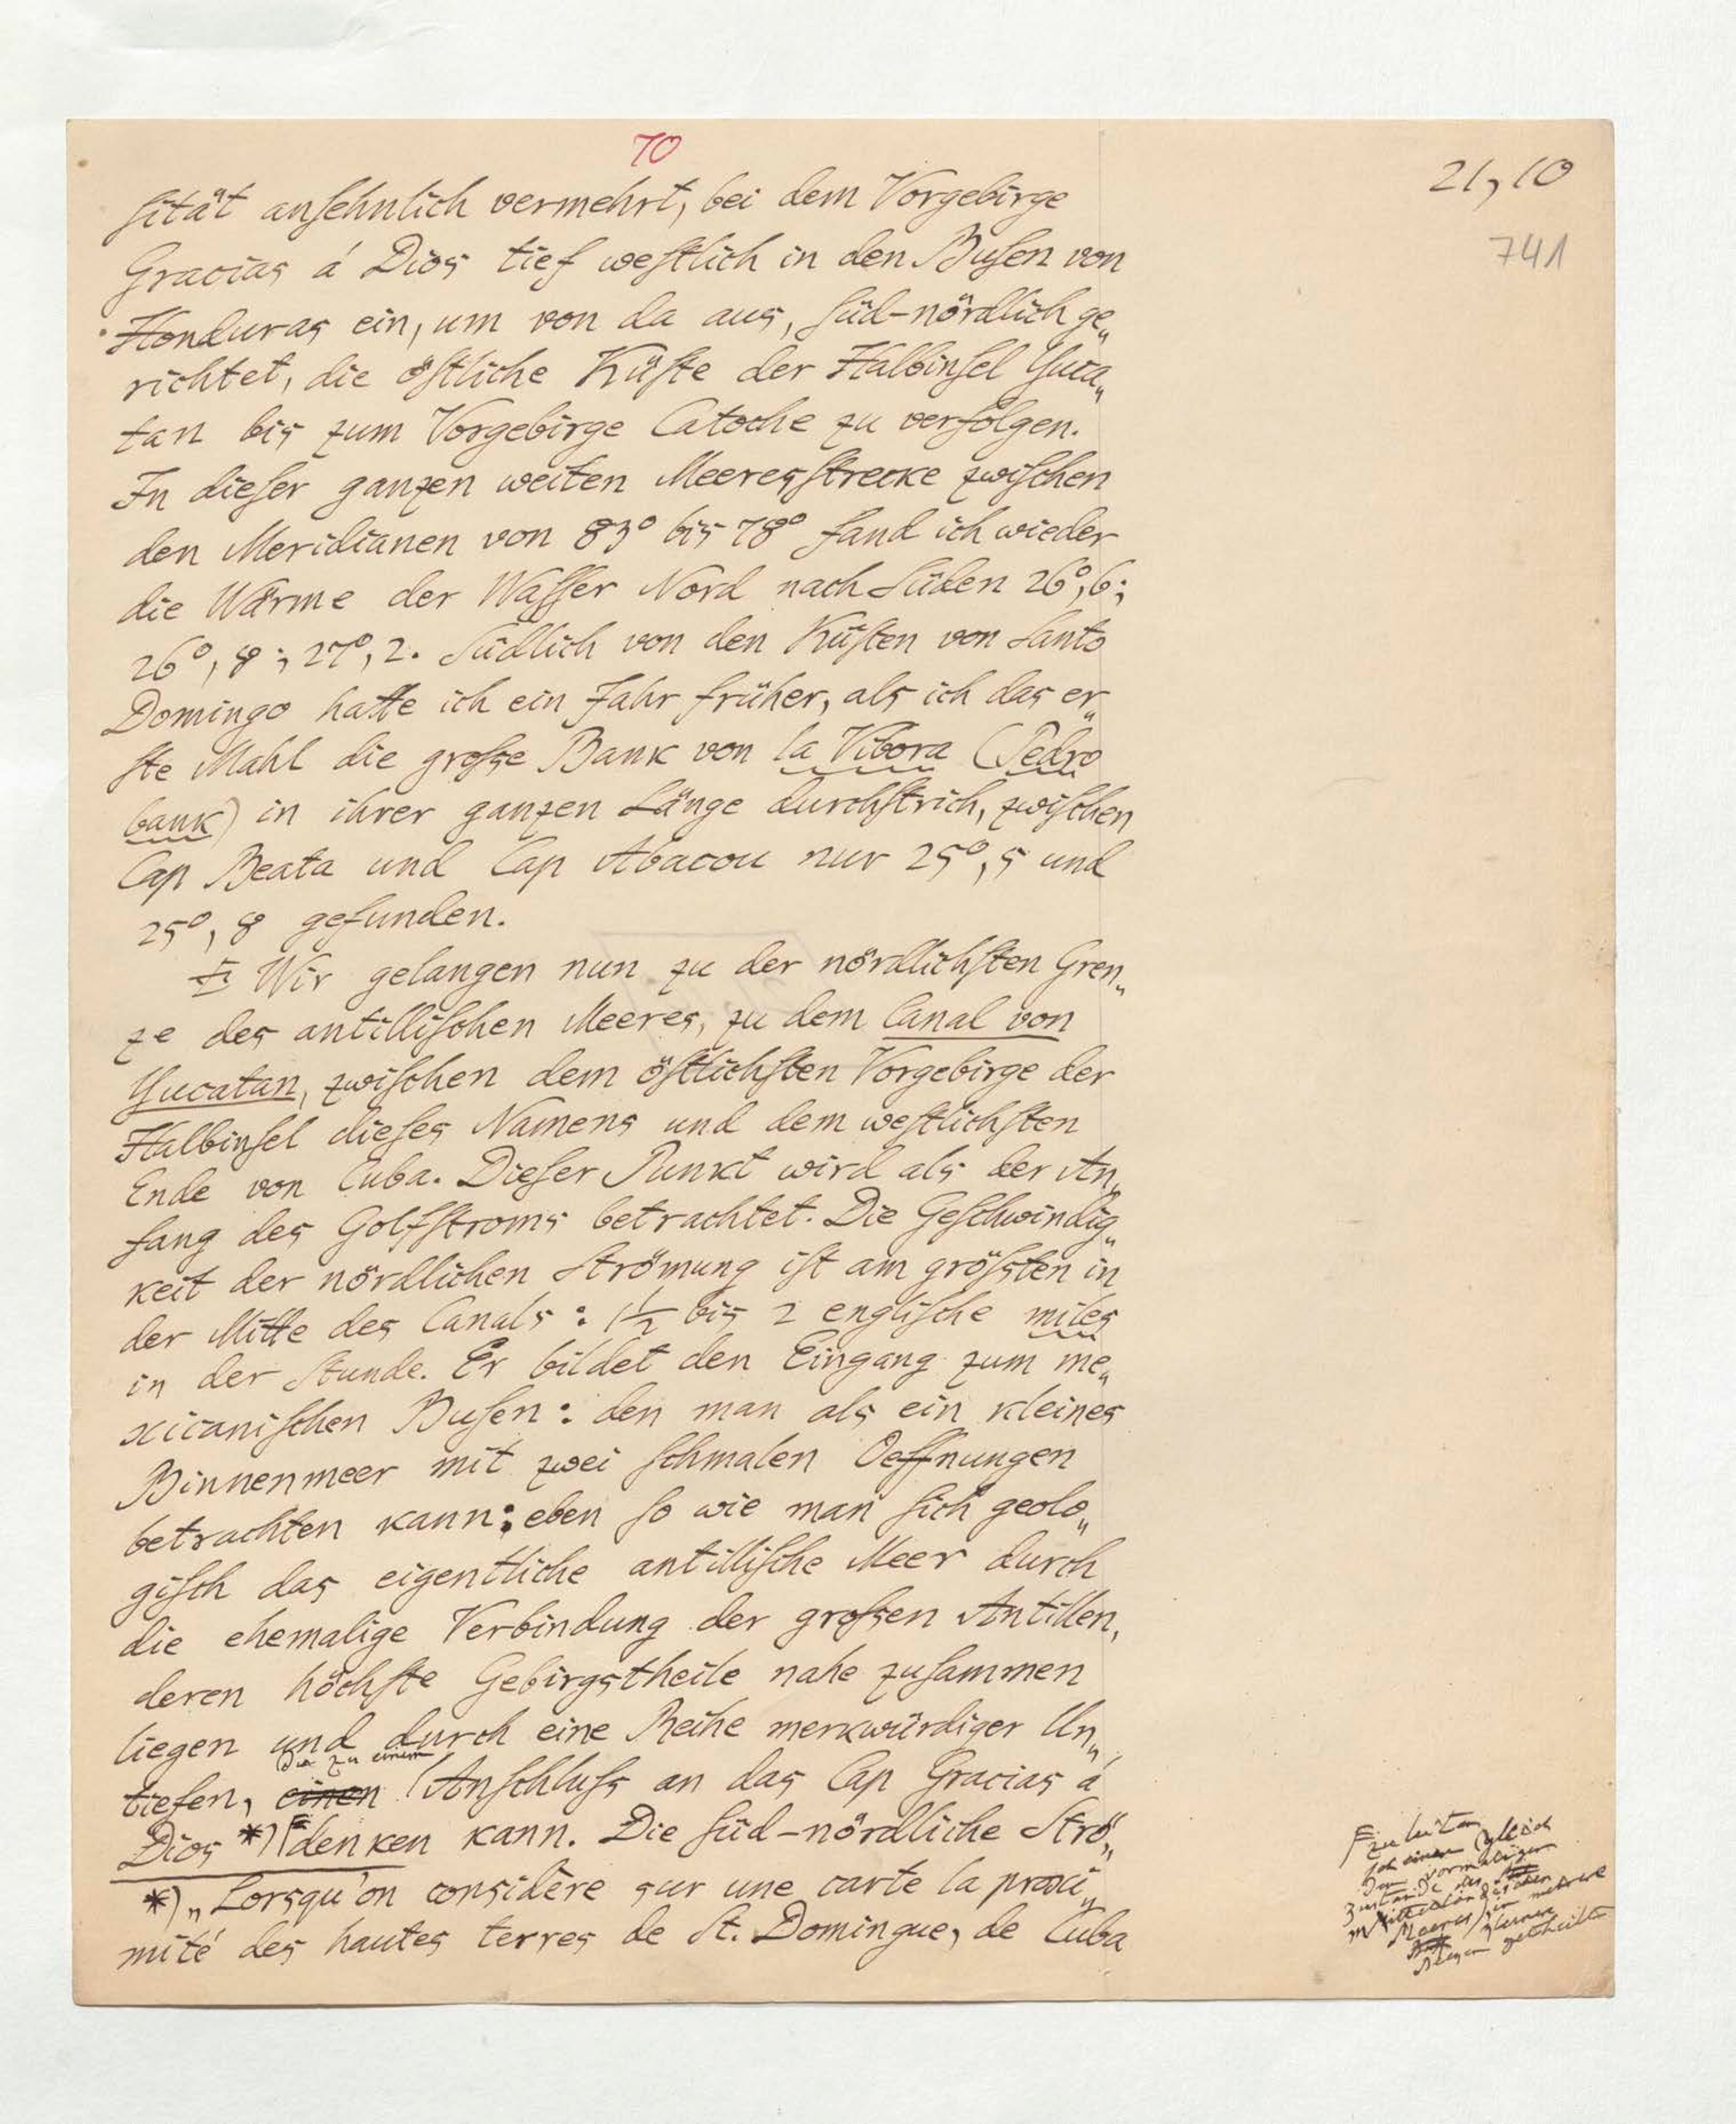 70
21,10
741
sität ansehnlich vermehrt, bei dem Vorgebirge
Gracias á Dios tief westlich in den Busen von
Honduras ein, um von da aus, süd-nördlich ge„
richtet, die östliche Küste der Halbinsel Yuca„
tan bis zum Vorgebirge Catoche zu verfolgen.
In dieser ganzen weiten Meeresstrecke zwischen
den Meridianen von 83° bis 78° fand ich wieder
die Wärme der Wasser Nord nach Süden 26°,6;
26°,8; 27°,2. Südlich von den Küsten von Santo
Domingo hatte ich ein Jahr früher, als ich das er„
ste Mahl die große Bank von la Vibora (Pedro
bank) in ihrer ganzen Länge durchstrich, zwischen
Cap Beata und Cap Abacou nur 25°,5 und
25°,8 gefunden.
Wir gelangen nun zu der nördlichsten Gren„
ze des antillischen Meeres, zu dem Canal von
Yucatan, zwischen dem östlichsten Vorgebirge der
Halbinsel dieses Namens und dem westlichsten
Ende von Cuba. Dieser Punkt wird als der An„
fang des Golfstroms betrachtet. Die Geschwindig„
keit der nördlichen Strömung ist am größten in
der Mitte des Canals: 1½ bis 2 englische miles
in der Stunde. Er bildet den Eingang zum me„
xicanischen Busen: den man als ein kleines
Binnenmeer mit zwei schmalen Oeffnungen
betrachten kann: eben so wie man sich geolo„
gisch das eigentliche antillische Meer durch
die ehemalige Verbindung der großen Antillen,
deren höchste Gebirgstheile nahe zusammen
liegen und durch eine Reihe merkwürdiger Un„
die zu einem
tiefen, einen Anschluß an das Cap Gracias á
Dios *) denken kann. Die süd-nördliche Strö„
*) „Lorsqu'on considère sur une carte la proxi„
mité des hautes terres de St. Domingue, de Cuba
zu leiten
gleich
dem vormaligen
Zustande des
mittelländischen
Meeres, in mehrere
kleinere
Becken getheilt